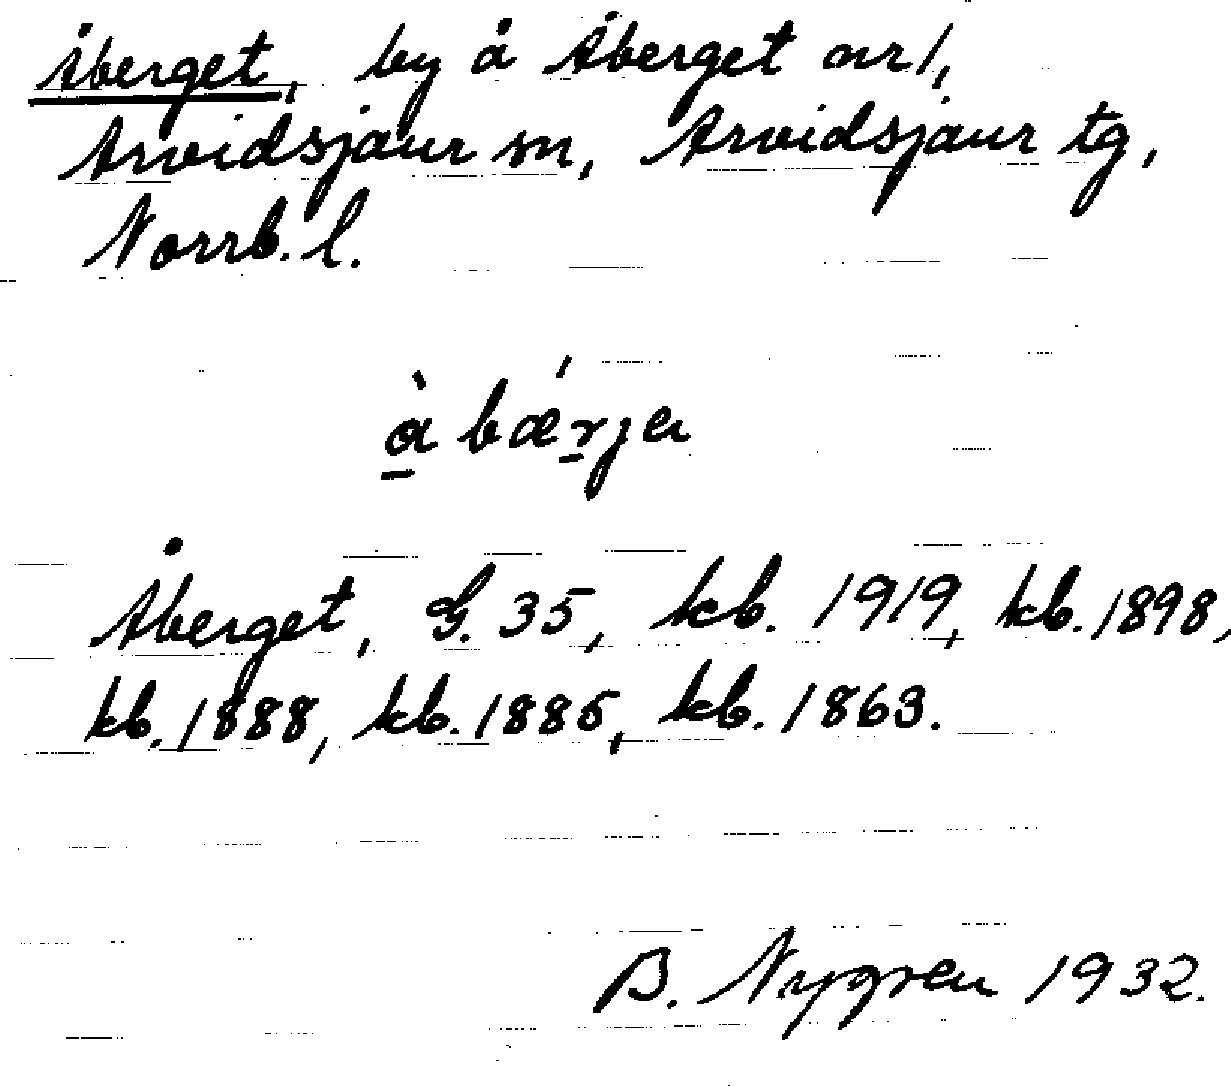 Åberget, by å Åberget nr 1,
Arvidsjaur sn, Arvidsjaur tg,
Norrb. l.
Åberget, G. 35, kb. 1919, kb. 1898,
kb. 1888, kb. 1885, kb. 1863.
B. Nygren 1932.